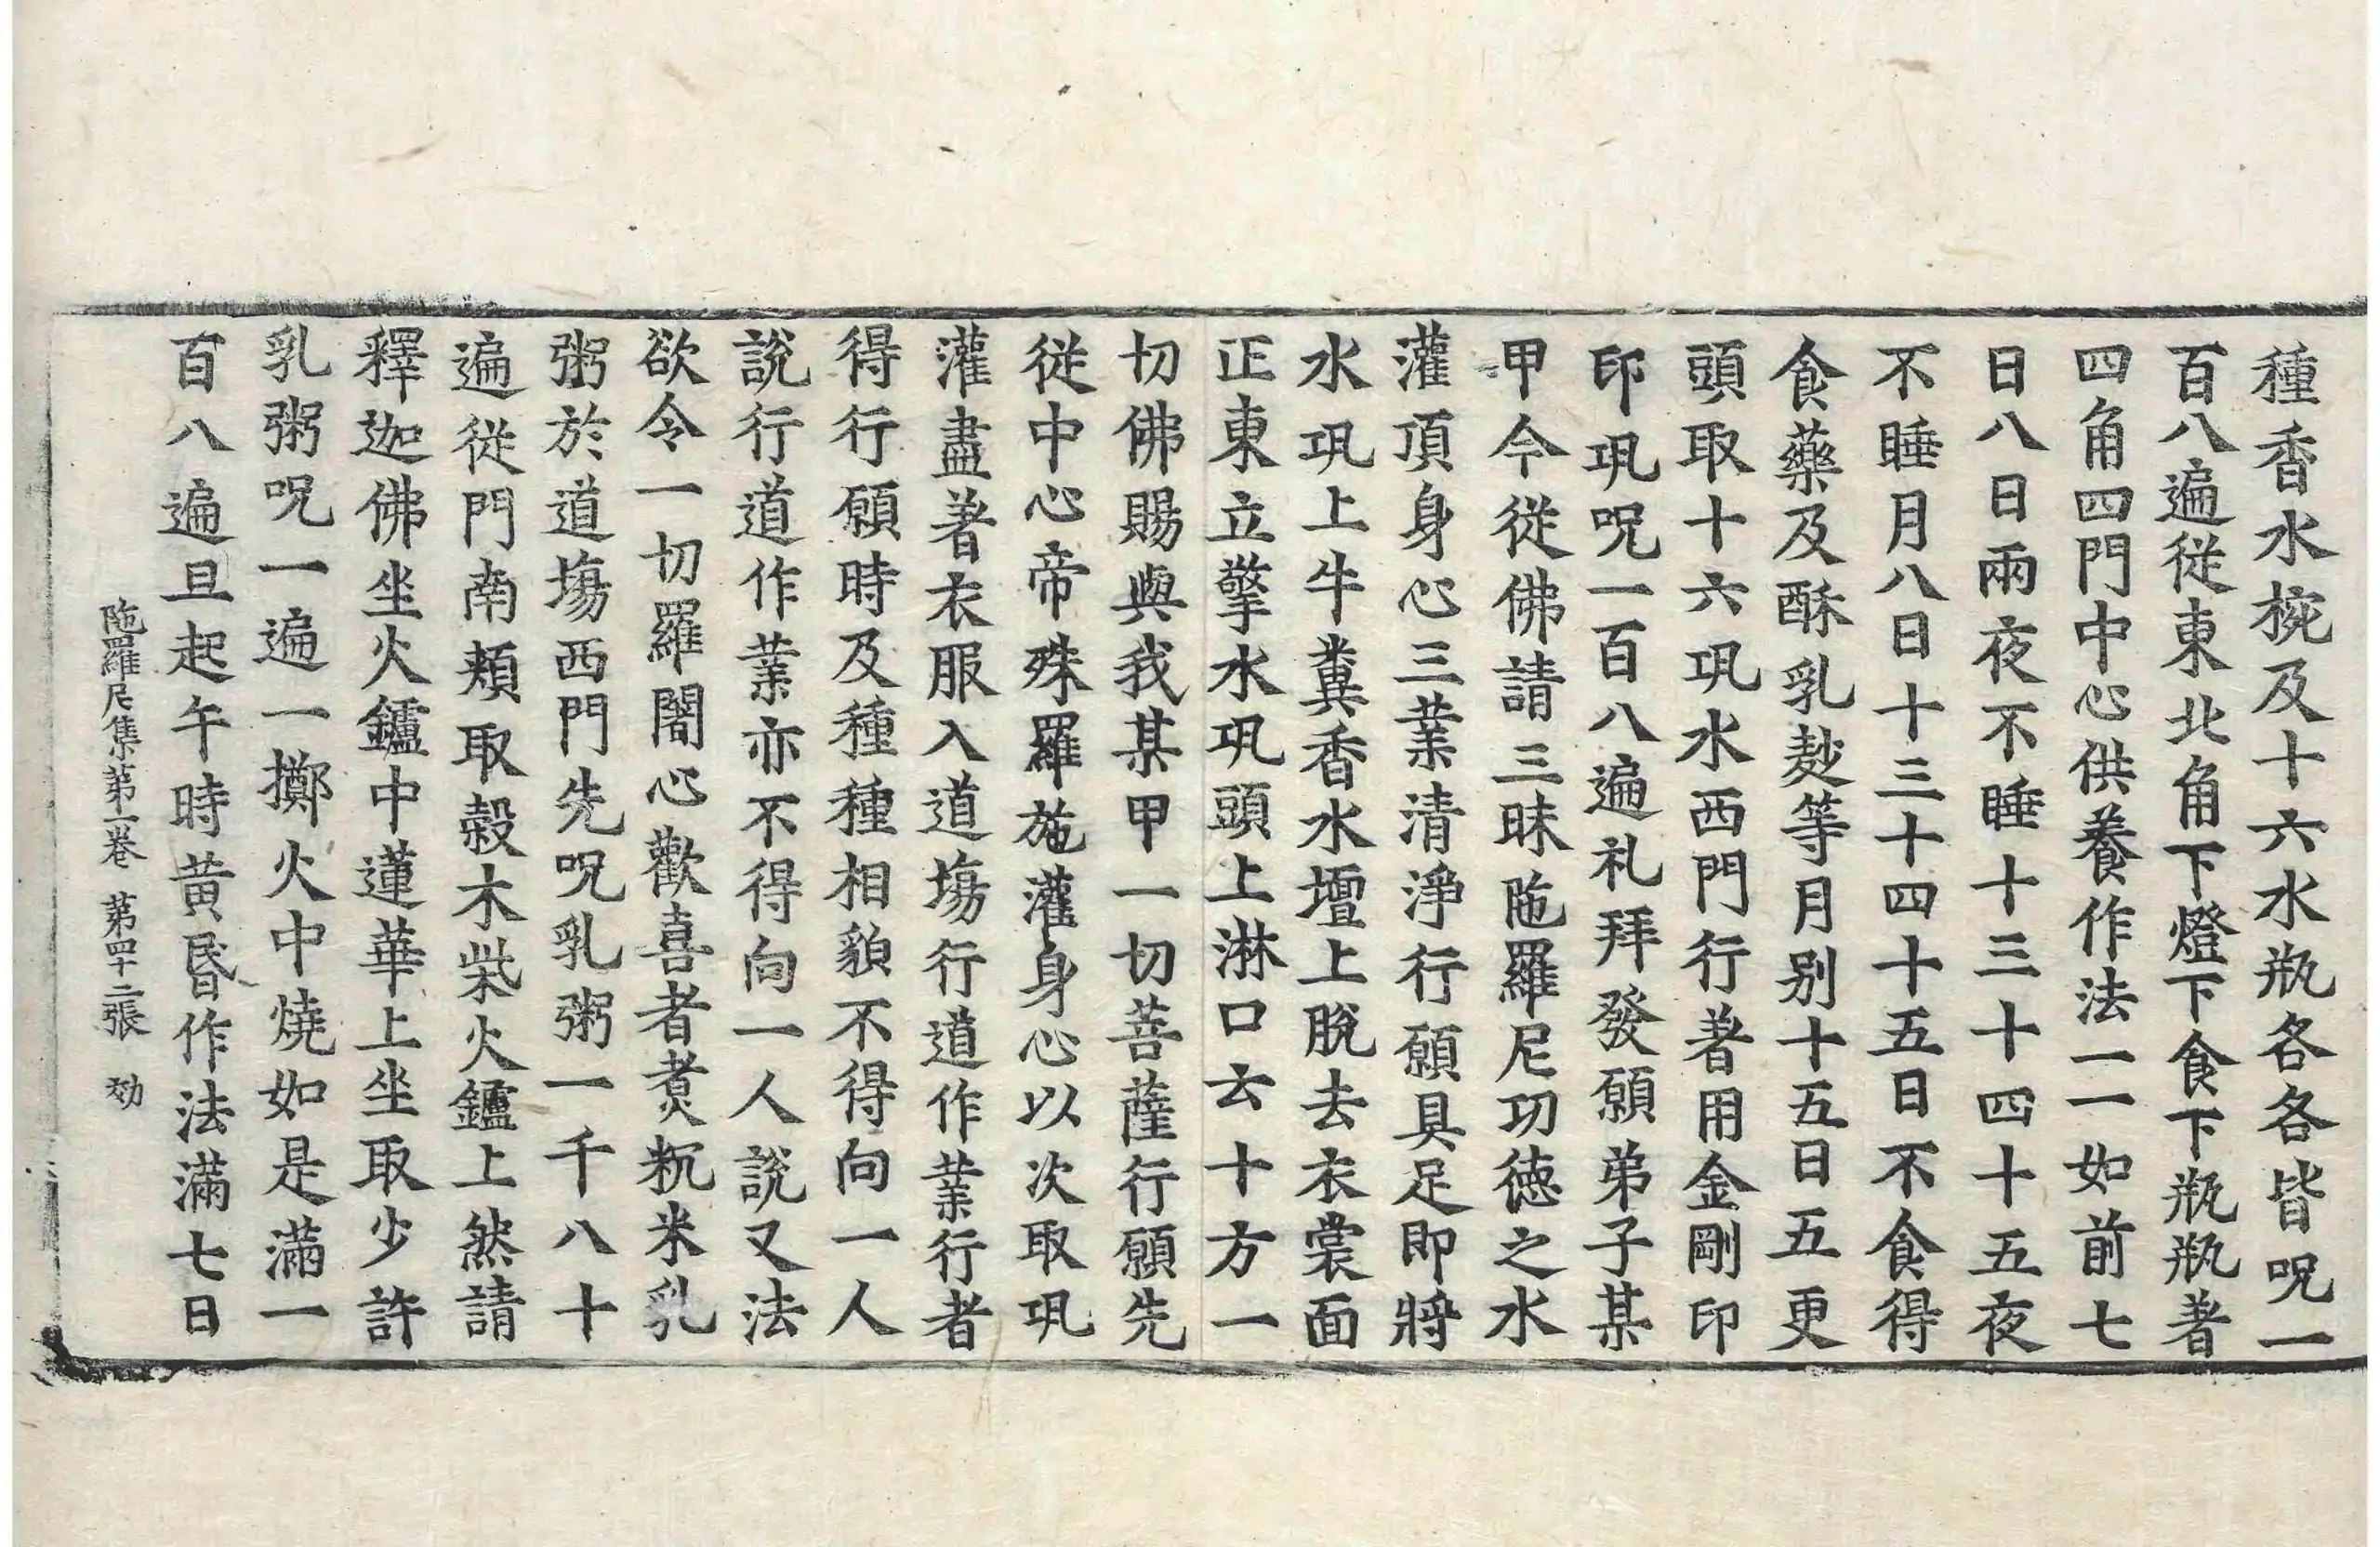 種香水椀及十六水瓶各各皆呪一
百八遍從東北角下燈下食下瓶瓶著
四角四門中心供養作法一一如前七
日八日兩夜不睡十三十四十五夜
不睡月八日十三十四十五日不食得
食藥及酥乳麨等月別十五日五更
頭取十六瓨水西門行者用金剛印
印瓨呪一百八遍礼拜發願弟子某
甲今從佛請三昧陁羅尼功德之水
灌頂身心三業清淨行願具足即將
水瓨上牛糞香水壇上脫去衣裳面
正東立擎水瓨頭上淋口云十方一
切佛賜與我某甲一切菩薩行願先
從中心帝殊羅施灌身心以次取瓨
灌盡著衣服入道塲行道作業行者
得行願時及種種相貌不得向一人
說行道作業亦不得向一人說又法
欲令一切羅闍心歡喜者煑粇米乳
粥於道塲西門先呪乳粥一千八十
遍從門南頰取榖木柴火鑪上然請
釋迦佛坐火鑪中蓮華上坐取少許
乳粥呪一遍一擲火中燒如是滿一
百八遍旦起午時黃昏作法滿七日
陁羅尼集第一卷 第四十二張 効